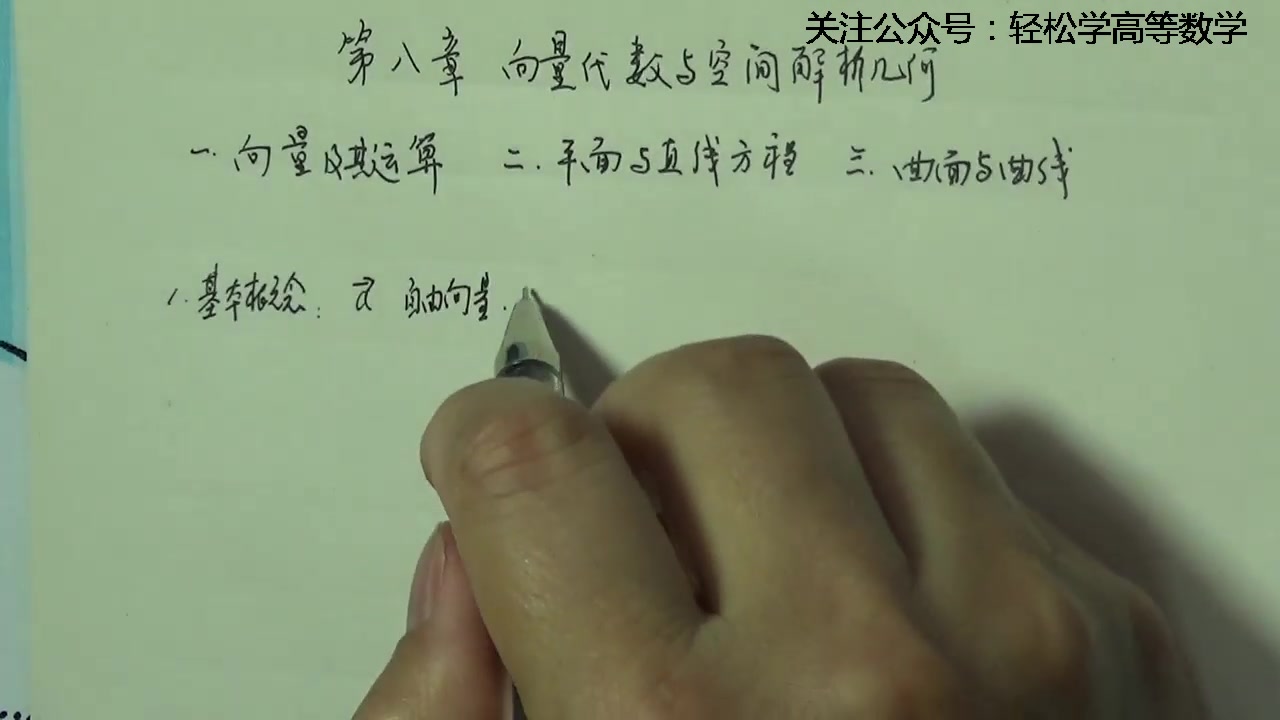 关注公众号：轻松学高等数学
第八章 向量代数与空间解析几何
一.向量及其运算 二.平面与直线方程 三.曲面与曲线
1.基本概念： a⃗ 自由向量.